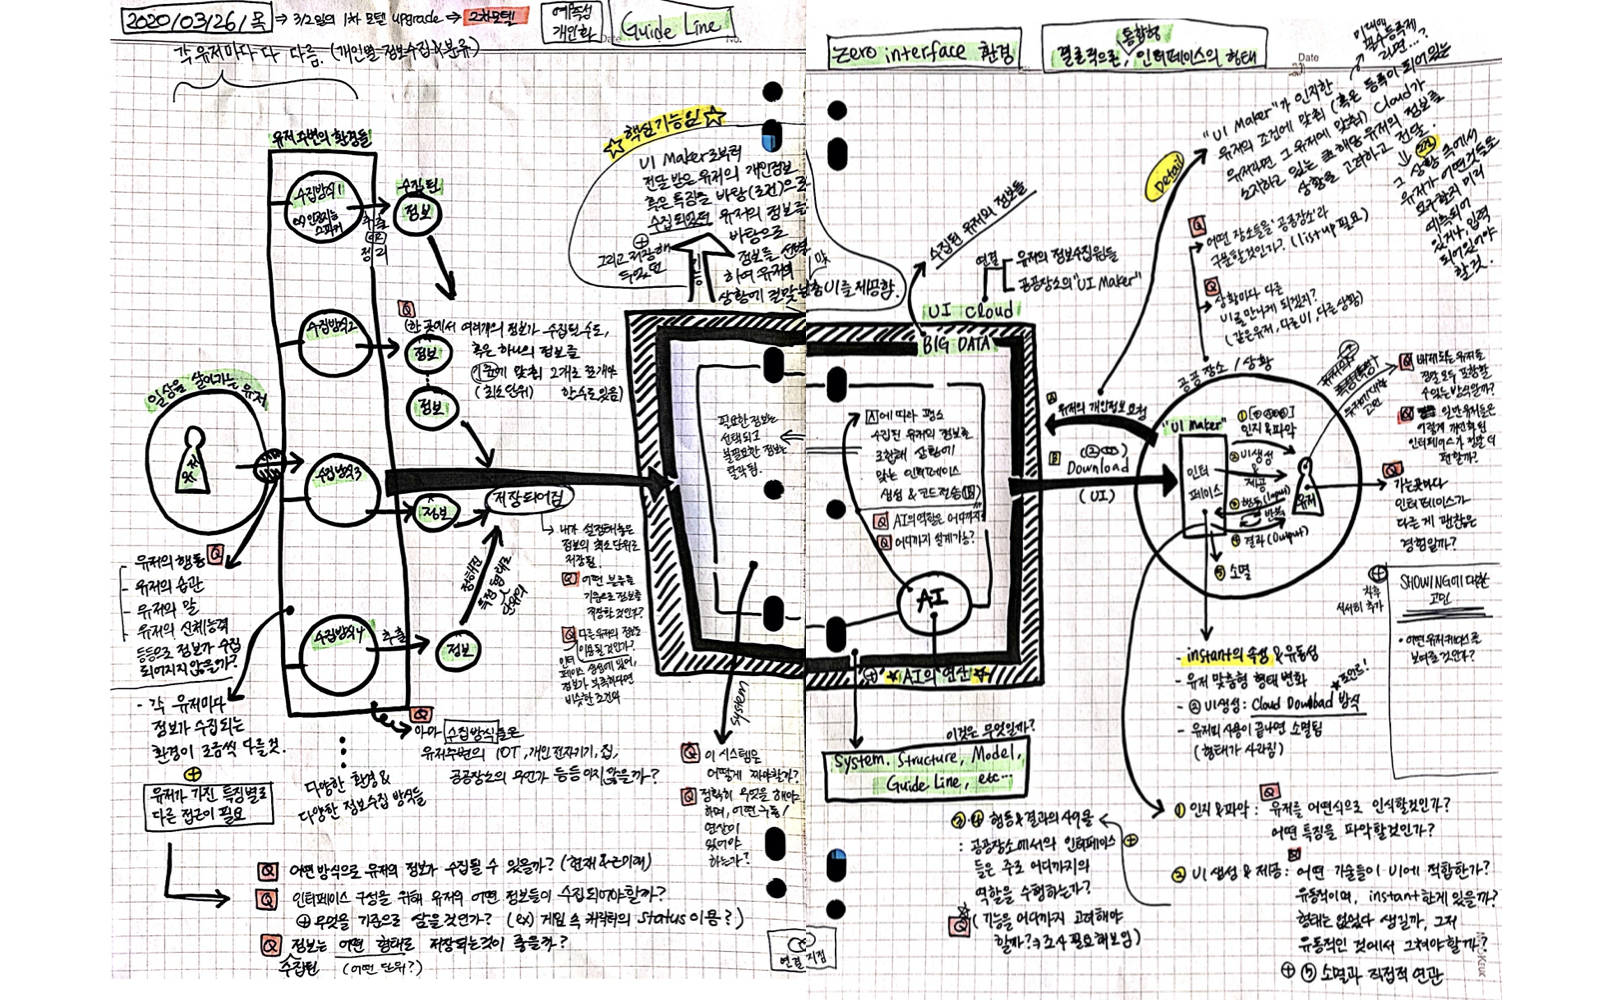 2020/03/26/목 ⇒ 3/2일의 1차 모델 upgrade → 2차모델
예측성
개인화
Guide Line
각 유저마다 다 다름. (개인별 정보수집&분류)
유저 주변의 환경들
수집방식1
ex) 인공지능
스피커
추출
정리
수집된
정보
수집방식2
정보
정보
Q
(한 곳에서 여러개의 정보가 수집될 수도,
혹은 하나의 정보를
기준에 맞춰 2개로 쪼개야
(최소단위) 할 수도 있음)
일상을 살아가는 유저
유저
수집방식3
정보
저장되어짐
정해진
특정형태로
단위의
수집방식4
추출
정보
유저의 행동 Q
- 유저의 습관
- 유저의 말
- 유저의 신체능력
등등으로 정보가 수집
되어지지 않을까?
- 각 유저마다
정보가 수집되는
환경이 조금씩 다를것.
⊕
유저가 가진 특징별로
다른 접근이 필요
다양한 환경 &
다양한 정보수집 방식들
Q
아마 수집방식들은
유저주변의 IOT, 개인 전자기기, 집,
공공장소의 무언가 등등이지 않을까?
내가 설정해놓은
정보의 최소단위로
저장됨
Q 어떤 분류를
기준으로 정보를
저장할 것인가?
Q 다른 유저의 정보도
이용될것인가?
정보가 부족하다면
비슷한 조건의
☆ 핵심기능임 ☆
UI Maker로부터
전달 받은 유저의 개인정보
혹은 특징을 바탕(조건)으로
수집되었던 유저의 정보를
바탕으로
정보를 선별
하여 유저의
상황에 걸맞는 맞춤 UI를 제공함.
⊕
그리고 저장해
두었던
기능
필요한 정보는
선택되고
불필요한 정보는
탈락됨.
system
Q 이 시스템은
어떻게 짜야할까?
Q 정확히 무엇을 해야
하며, 어떤 수를/
연산이
있어야
하는가?
Q 어떤 방식으로 유저의 정보가 수집될 수 있을까? (현재 & 근미래)
Q 인터페이스 구성을 위해 유저의 어떤 정보들이 수집되어야할까?
⊕ 무엇을 기준으로 삼을것인가? (ex) 게임 속 캐릭터의 status 이용?)
Q 정보는 어떤 형태로 저장되는것이 좋을까?
수집된 (어떤 단위?)
연결지점
Zero interface 환경
통합형
결론적으로, 인터페이스의 형태
Date
"UI Maker"가 인지한
유저의 조건에 맞춰 (혹은 등록이 되어있는
유저라면 그 유저에 맞춰) Cloud가
소지하고 있는 해당 유저의 정보를
상황을 고려하고 전달.
그 상황 속에서
유저가 어떤것들을
요구할지 미리
예측되어
있거나, 입력
되어있어야
할것.
Detail
수집된 유저의 정보들
연결
유저의 정보수집원들
공공장소의 "UI Maker"
UI Cloud
BIG DATA
A에 따라 평소
수집된 유저의 정보를
조합해 상황에
맞는 인터페이스
생성 & 코드전송(B)
Q AI의 역할은 어디까지?
Q 어디까지 설계가능?
AI
⊕ ★ AI의 연산 ★
A
유저의 개인정보 요청
B
Download
(UI)
Q
어떤 장소들을 '공공장소'라
구분할것인가? (list up 필요)
Q
상황마다 다른
UI를 만나게 되겠지?
(같은유저, 다른 UI, 다른 상황)
공공장소 / 상황
"UI Maker"
인터
페이스
인지&파악
② UI생성
&
제공
③ 행동(Input)
반복
④ 결과(Output)
유저
⑤ 소멸
Q 배제되는 유저들
정말 모두 포함할
수 있는 방식일까?
Q 일반유저들은
이렇게 개인화된
인터페이스가 정말 더
편할까?
Q
가는곳마다
인터페이스가
다른게 괜찮은
경험일까?
⊕
차후
서서히 추가
SHOWING에 대한
고민
• 어떤 유저 케이스로
보여줄것인가?
- instant의 속성 & 유동성
- 유저 맞춤형 형태 변화
- ② UI생성 : Cloud Download 방식 ★포인트!
- 유저의 사용이 끝나면 소멸됨
(형태가 사라짐)
이것은 무엇일까?
System. Structure, Model,
Guide Line, etc...
③·④ 행동&결과의 사이클
: 공공장소에서의 인터페이스
들은 주로 어디까지의
역할을 수행하는가?
Q (기능을 어디까지 고려해야
할까? → 조사 필요해보임)
⊕
Q
① 인지&파악 : 유저를 어떤식으로 인식할것인가?
어떤 특징을 파악할것인가?
② UI 생성 & 제공 : 어떤 기술들이 UI에 적합한가?
유동적이며, instant한게 있을까?
형태는 없었다 생길까, 그저
유동적인 것에서 그쳐야할까?
⊕ ⑤ 소멸과 직접적 연관